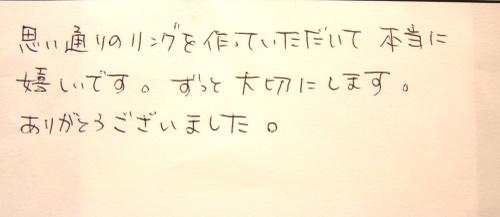 思い通りのリングを作っていただいて 本当に
嬉しいです。ずっと 大切にします。
ありがとうございました。